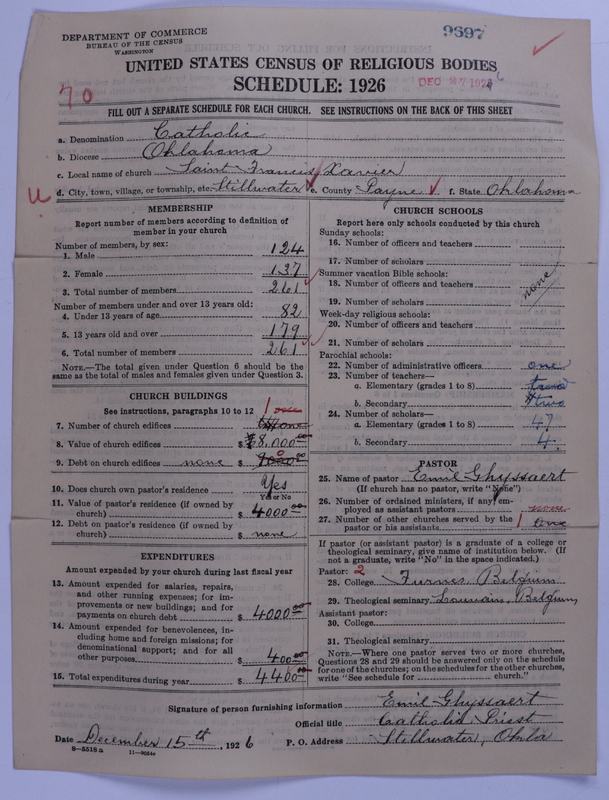 DEPARTMENT OF COMMERCE
BUREAU OF THE CENSUS
WASHINGTON
9697
UNITED STATES CENSUS OF RELIGIOUS BODIES
SCHEDULE: 1926
DEC 27 1926
70
FILL OUT A SEPARATE SCHEDULE FOR EACH CHURCH. SEE INSTRUCTIONS ON THE BACK OF THIS SHEET
a. Denomination Catholic
b. Diocese Oklahoma
c. Local name of church Saint Francis Xavier
d. City, town, village, or township, etc. Stillwater e. County Payne f. State Oklahoma
MEMBERSHIP
Report number of members according to definition of
member in your church
Number of members, by sex:
1. Male 124
2. Female 137
3. Total number of members 261
Number of members under and over 13 years old:
4. Under 13 years of age 82
5. 13 years old and over 179
6. Total number of members 261
NOTE.—The total given under Question 6 should be
same as the total of males and females given under Question 3.
CHURCH BUILDINGS
See instructions, paragraphs 10 to 12
7. Number of church edifices 1 one
8. Value of church edifices $ 8,000.00
9. Debt on church edifices none $
10. Does church own pastor's residence Yes
Yes or No
11. Value of pastor's residence (if owned by
church) $ 4000.00
12. Debt on pastor's residence (if owned by
church) $ none
EXPENDITURES
Amount expended by your church during last fiscal year
13. Amount expended for salaries, repairs,
and other running expenses; for im-
provements or new buildings; and for
payments on church debt $ 4000.00
14. Amount expended for benevolences, in-
cluding home and foreign missions; for
denominational support; and for all
other purposes $ 400.00
15. Total expenditures during year $ 4400.00
CHURCH SCHOOLS
Report here only schools conducted by this church
Sunday schools:
16. Number of officers and teachers
17. Number of scholars
Summer vacation Bible schools:
18. Number of officers and teachers
none
19. Number of scholars
Week-day religious schools:
20. Number of officers and teachers
21. Number of scholars
Parochial schools:
22. Number of administrative officers one
23. Number of teachers—
a. Elementary (grades 1 to 8)
b. Secondary two
24. Number of scholars—
a. Elementary (grades 1 to 8) 47
b. Secondary 4
PASTOR
25. Name of pastor Emil Ghyssaert
(If church has no pastor, write "None")
26. Number of ordained ministers, if any, em-
ployed as assistant pastors none
27. Number of other churches served by the
pastor or his assistants 1 one
If pastor (or assistant pastor) is a graduate of a college or
theological seminary, give name of institution below. (If
not a graduate, write "No" in the space indicated.)
Pastor: 2
28. College Furnes Belgium
29. Theological seminary Louvain, Belgium
Assistant pastor:
30. College
31. Theological seminary
NOTE.—Where one pastor serves two or more churches,
Questions 28 and 29 should be answered only on the schedule
for one of the churches; on the schedules for the other churches,
write "See schedule for church."
Signature of person furnishing information Emil Ghyssaert
Official title Catholic Priest
Date December 15th, 1926 P. O. Address Stillwater, Okla
8—5518 a 11—9054c